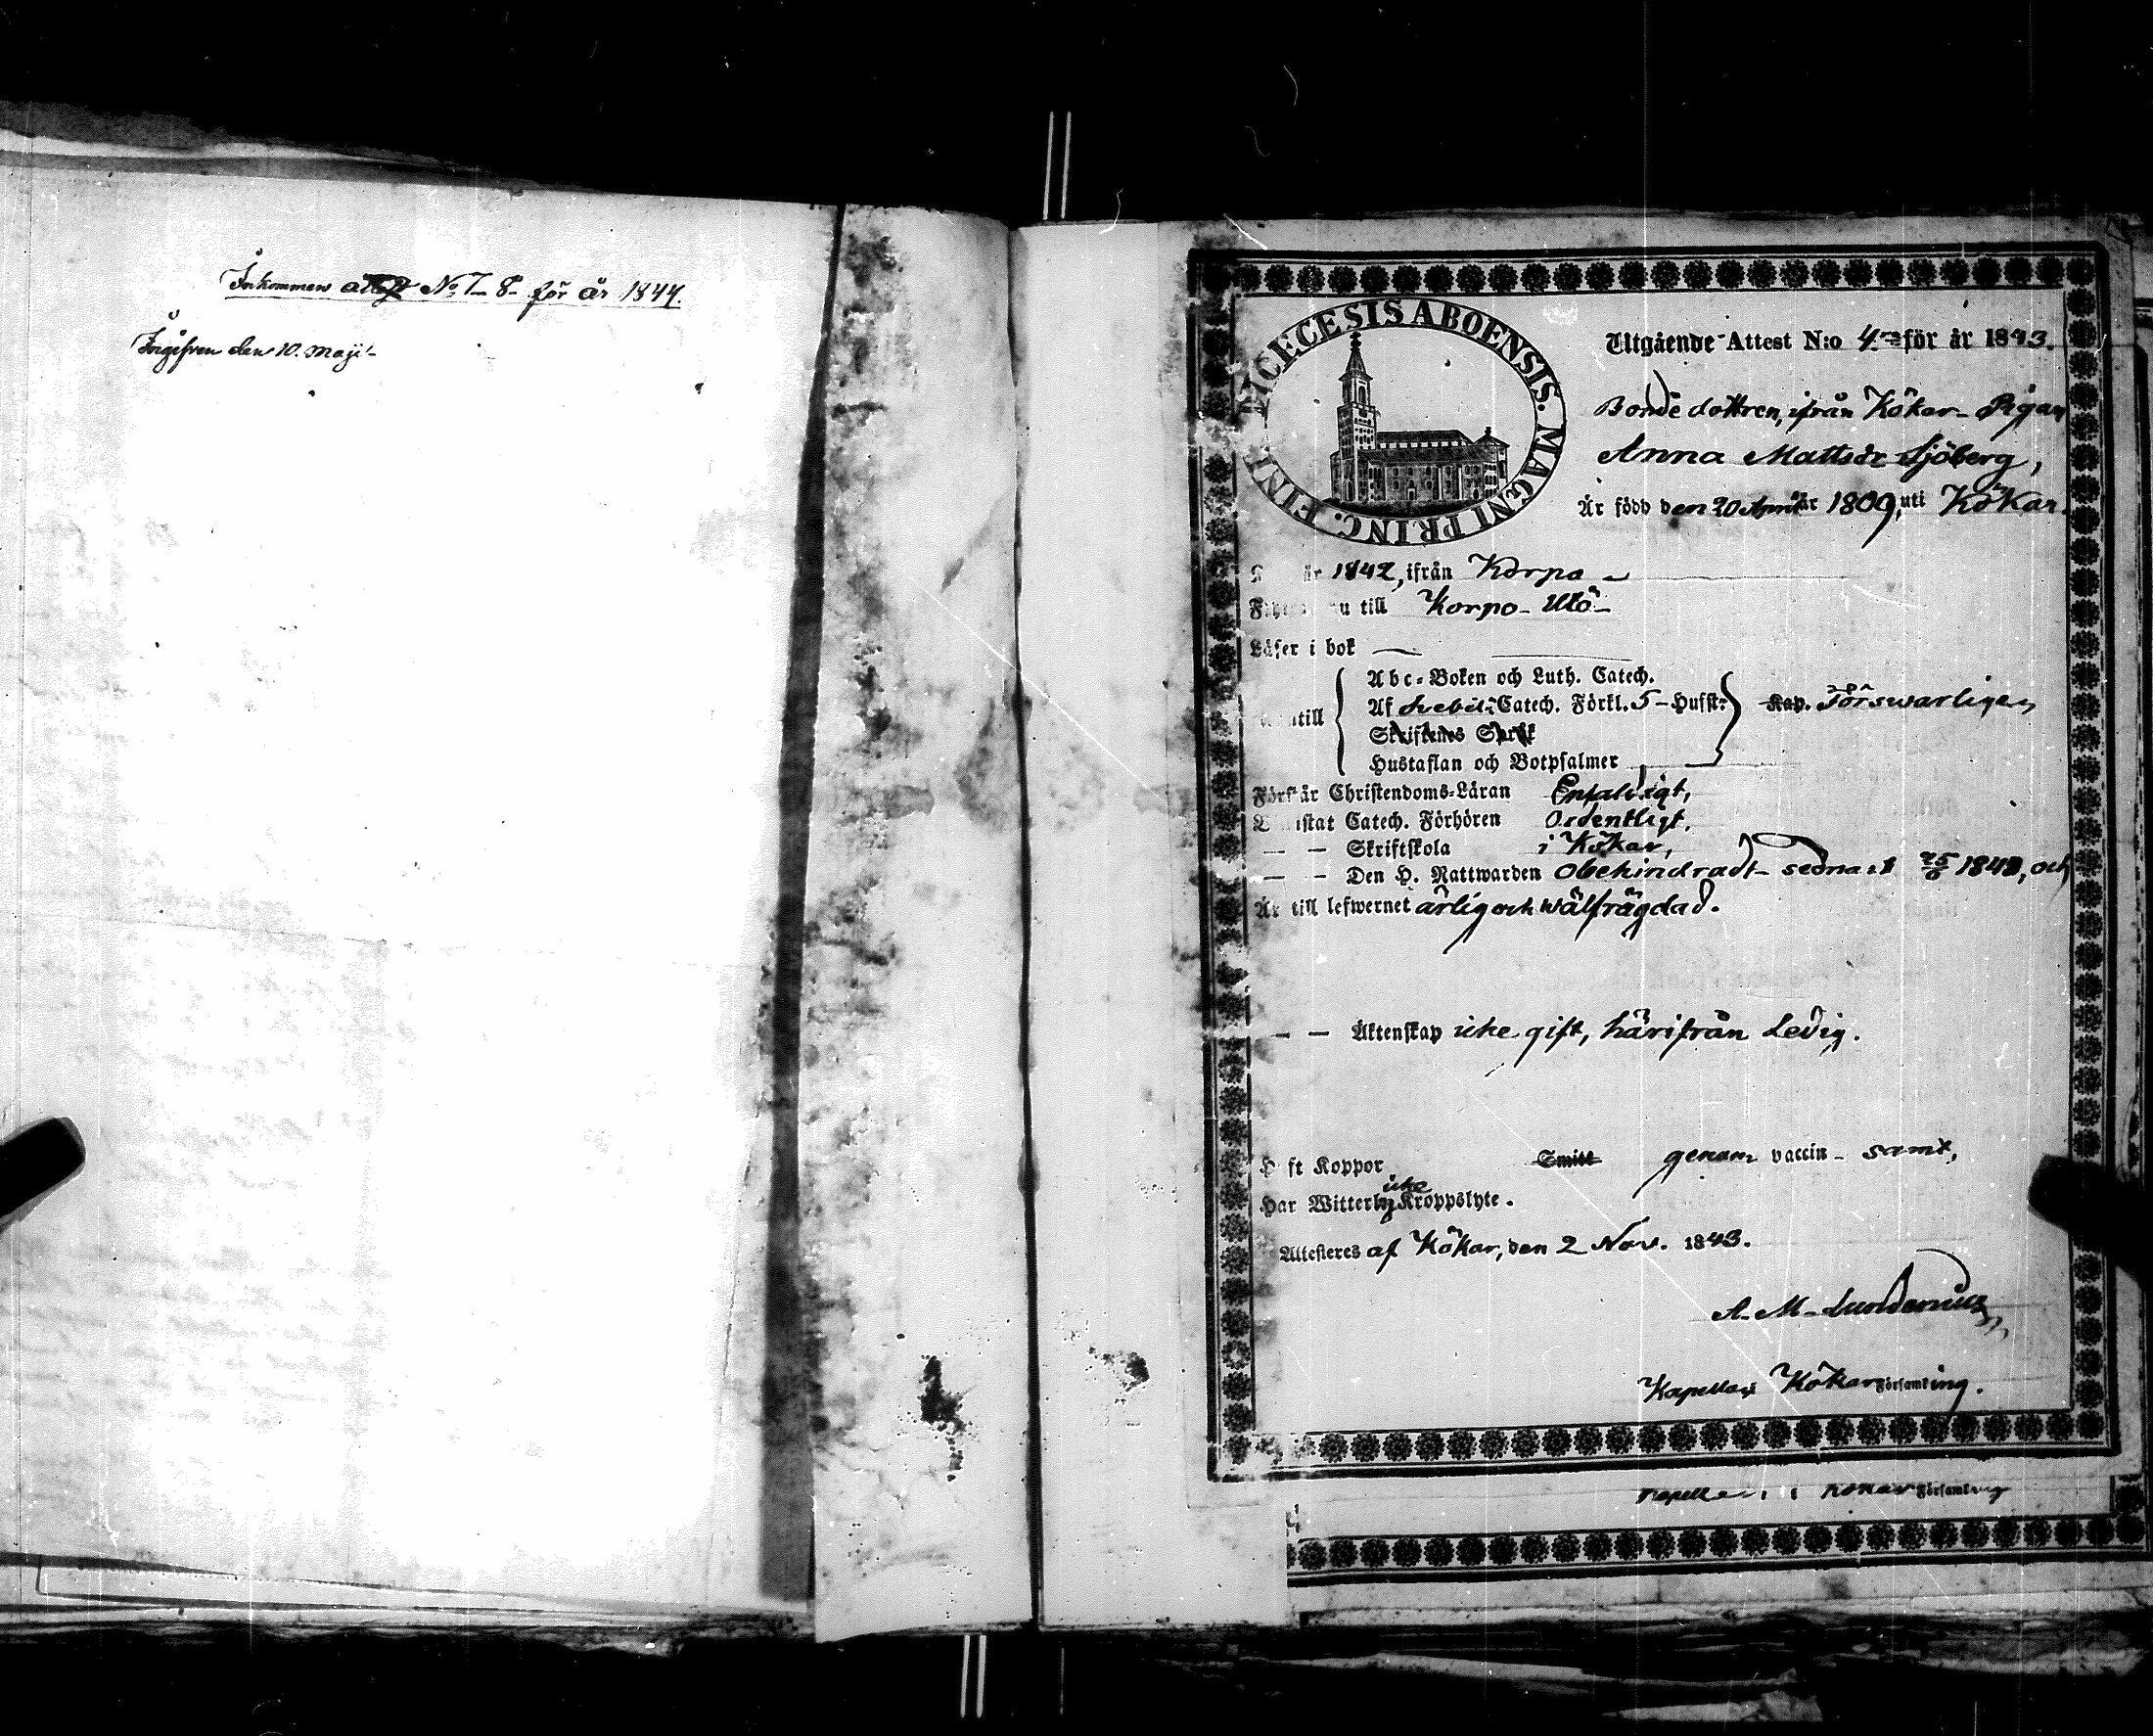 Inkommen attest No 7-8- för år 1844.
Ingifven den 10. Maji-
DIOECESIS ABOENSIS. MAGNI PRINC. FINL.
Utgående Attest N:o 4. för år 1843.
Bonde dottren, ifrån Kökar- Pigan
Anna Mattsdr Sjöberg,
Är född den 20 April år 1809, uti Kökar.
år 1842, ifrån Korpo
nu till Korpo- Utö-
Läser i bok
Abc-Boken och Luth. Catech.
till Af Svebil: Catech. Förkl. 5- Hufst: Kap. Försvarligen
Skriftenes Språk
Hustaflan och Botpsalmer
Förstår Christendoms-Läran Enfaldigt,
Catech. Förhören Ordentligt,
— — Skriftskola i Kökar,
— — Den H. Nattwarden Obehindradt- sednast 1843, och
Är till lefwernet ärlig och wälfrägdad.
— — Äktenskap icke gift, härifrån Ledig.
Haft Koppor Smitt genom vaccin- samt,
icke
Har Witterlig Kroppslyte.
Attesteres af Kökar, den 2 Nov. 1843.
A. M. Lundenius
Kapellan i Kökar Församling.
Kapellan i Kökar Församling